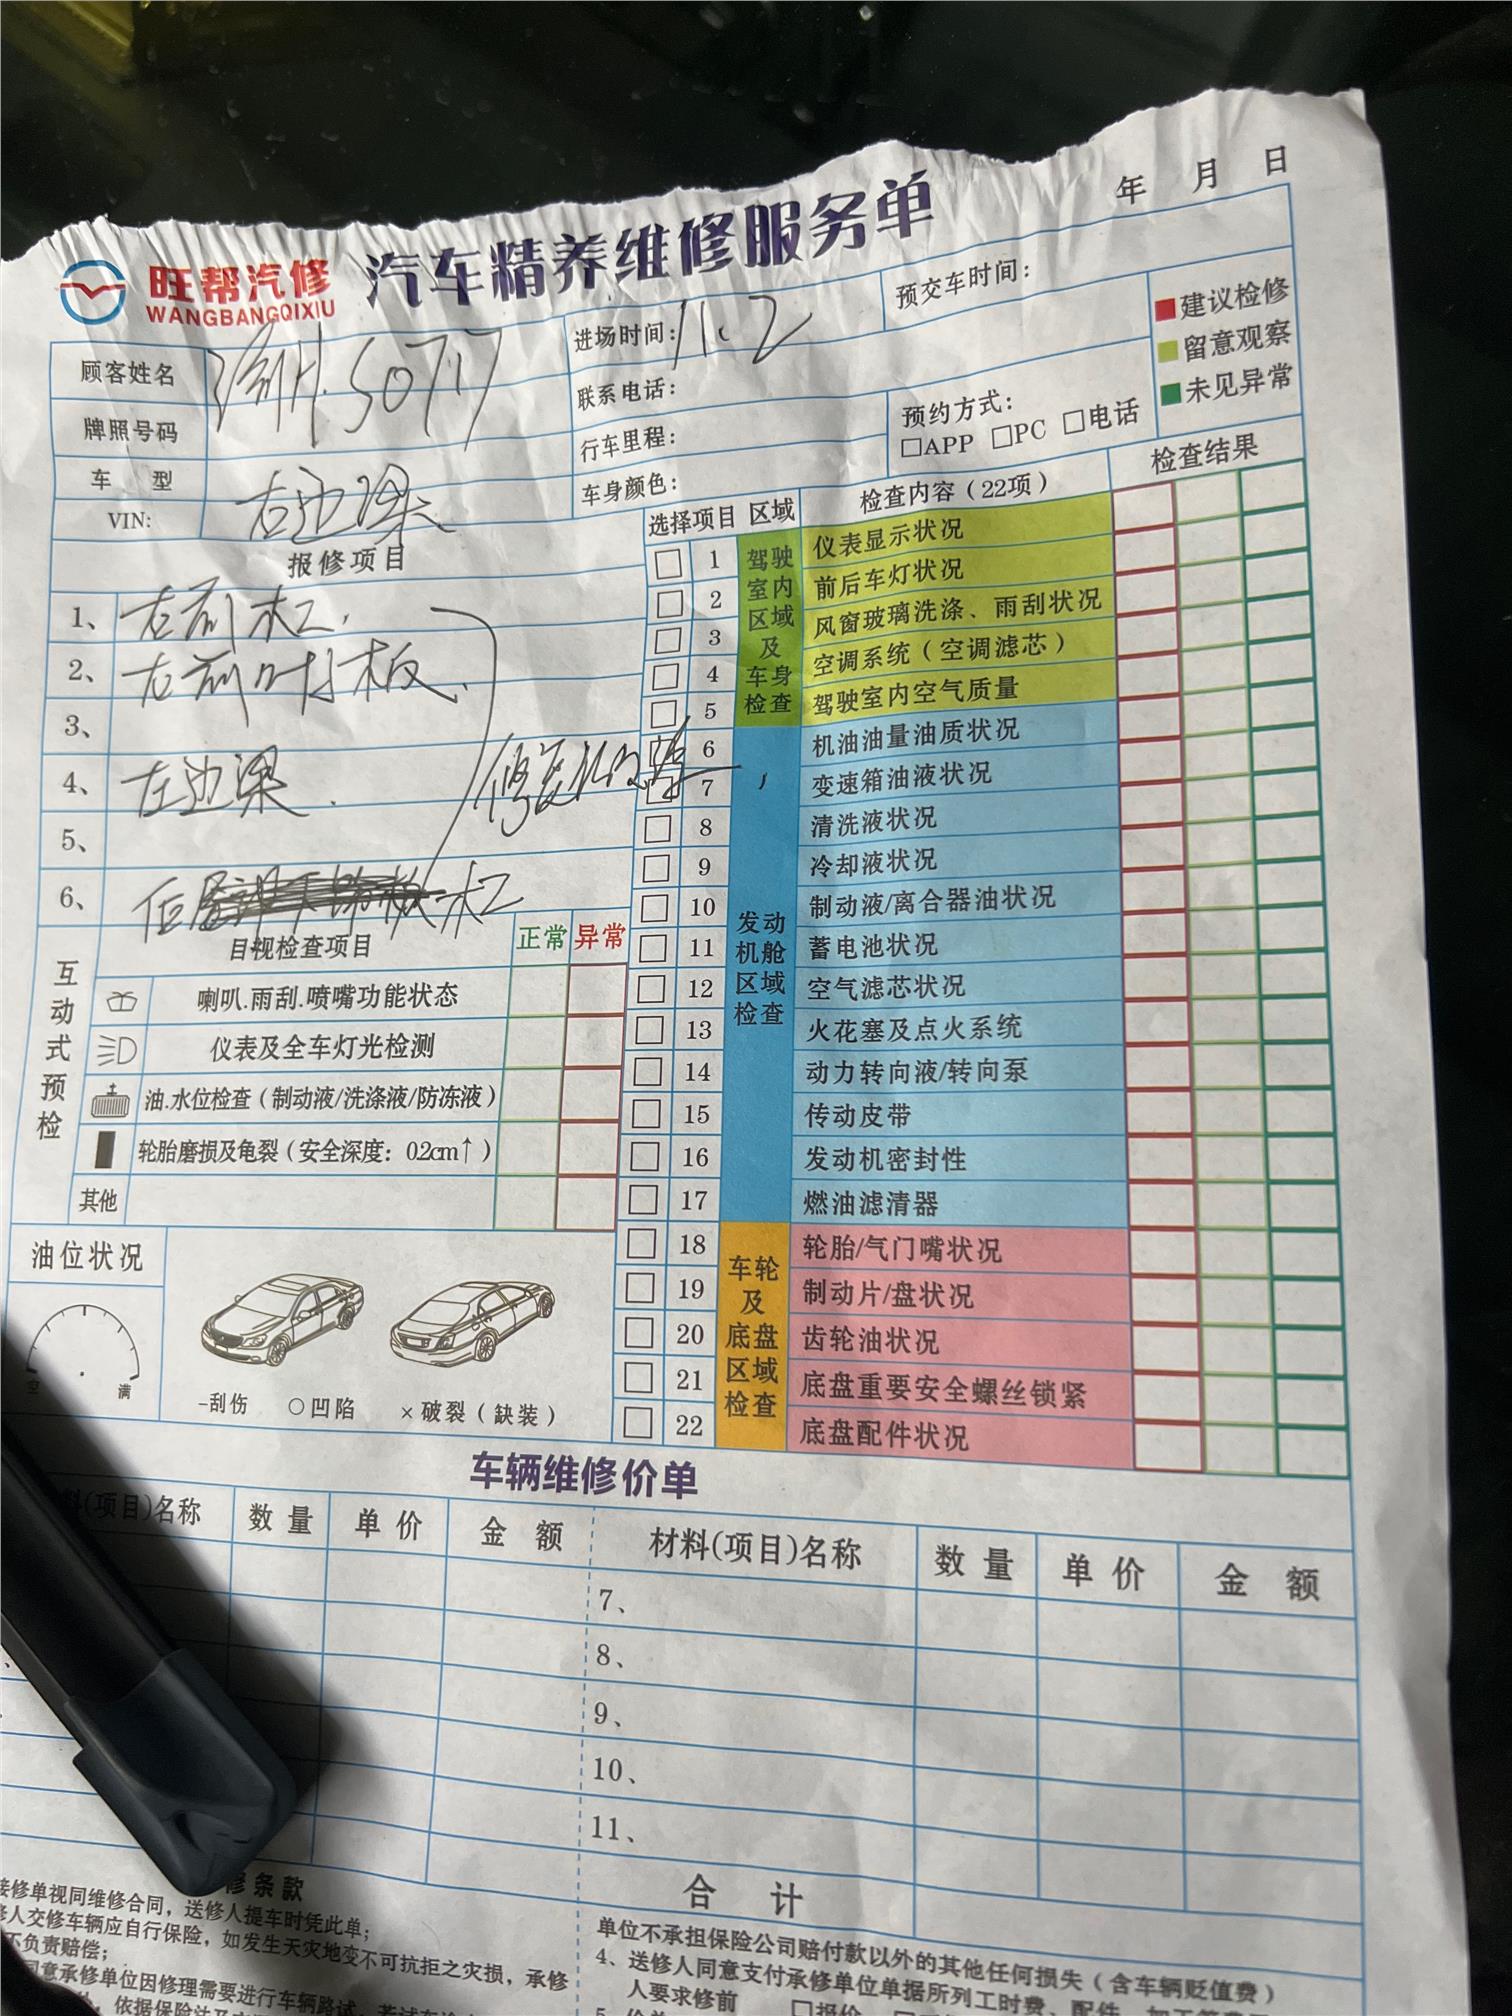 年 月 日
旺帮汽修
WANGBANGQIXIU
汽车精养维修服务单
顾客姓名
进场时间: 11.2
预交车时间:
建议检修
留意观察
未见异常
牌照号码
联系电话:
行车里程:
预约方式:
□APP □PC □电话
车 型
右边梁
车身颜色:
VIN:
报修项目
1、 右前杠.
2、 右前叶子板.
3、
4、 左边梁.
5、
6、
选择项目 区域 检查内容(22项) 检查结果
驾驶室内区域及车身检查
1 仪表显示状况
2 前后车灯状况
3 风窗玻璃洗涤、雨刮状况
4 空调系统(空调滤芯)
5 驾驶室内空气质量
发动机舱区域检查
6 机油油量油质状况
7 变速箱油液状况
8 清洗液状况
9 冷却液状况
10 制动液/离合器油状况
11 蓄电池状况
12 空气滤芯状况
13 火花塞及点火系统
14 动力转向液/转向泵
15 传动皮带
16 发动机密封性
17 燃油滤清器
车轮及底盘区域检查
18 轮胎/气门嘴状况
19 制动片/盘状况
20 齿轮油状况
21 底盘重要安全螺丝锁紧
22 底盘配件状况
互动式预检
目视检查项目 正常 异常
喇叭.雨刮.喷嘴功能状态
仪表及全车灯光检测
油.水位检查(制动液/洗涤液/防冻液)
轮胎磨损及龟裂(安全深度: 0.2cm↑)
其他
油位状况
空 满
-刮伤 ○凹陷 ×破裂(缺装)
车辆维修价单
料(项目)名称 数量 单价 金 额 材料(项目)名称 数量 单价 金 额
7、
8、
9、
10、
11、
合 计
修条款
接修单视同维修合同，送修人提车时凭此单;
修人交修车辆应自行保险，如发生天灾地变不可抗拒之灾损，承修
不负责赔偿;
同意承修单位因修理需要进行车辆路试，
单位不承担保险公司赔付款以外的其他任何损失(含车辆贬值费)
4、送修人同意支付承修单位单据所列工时费、配件、
人要求修前 □报价